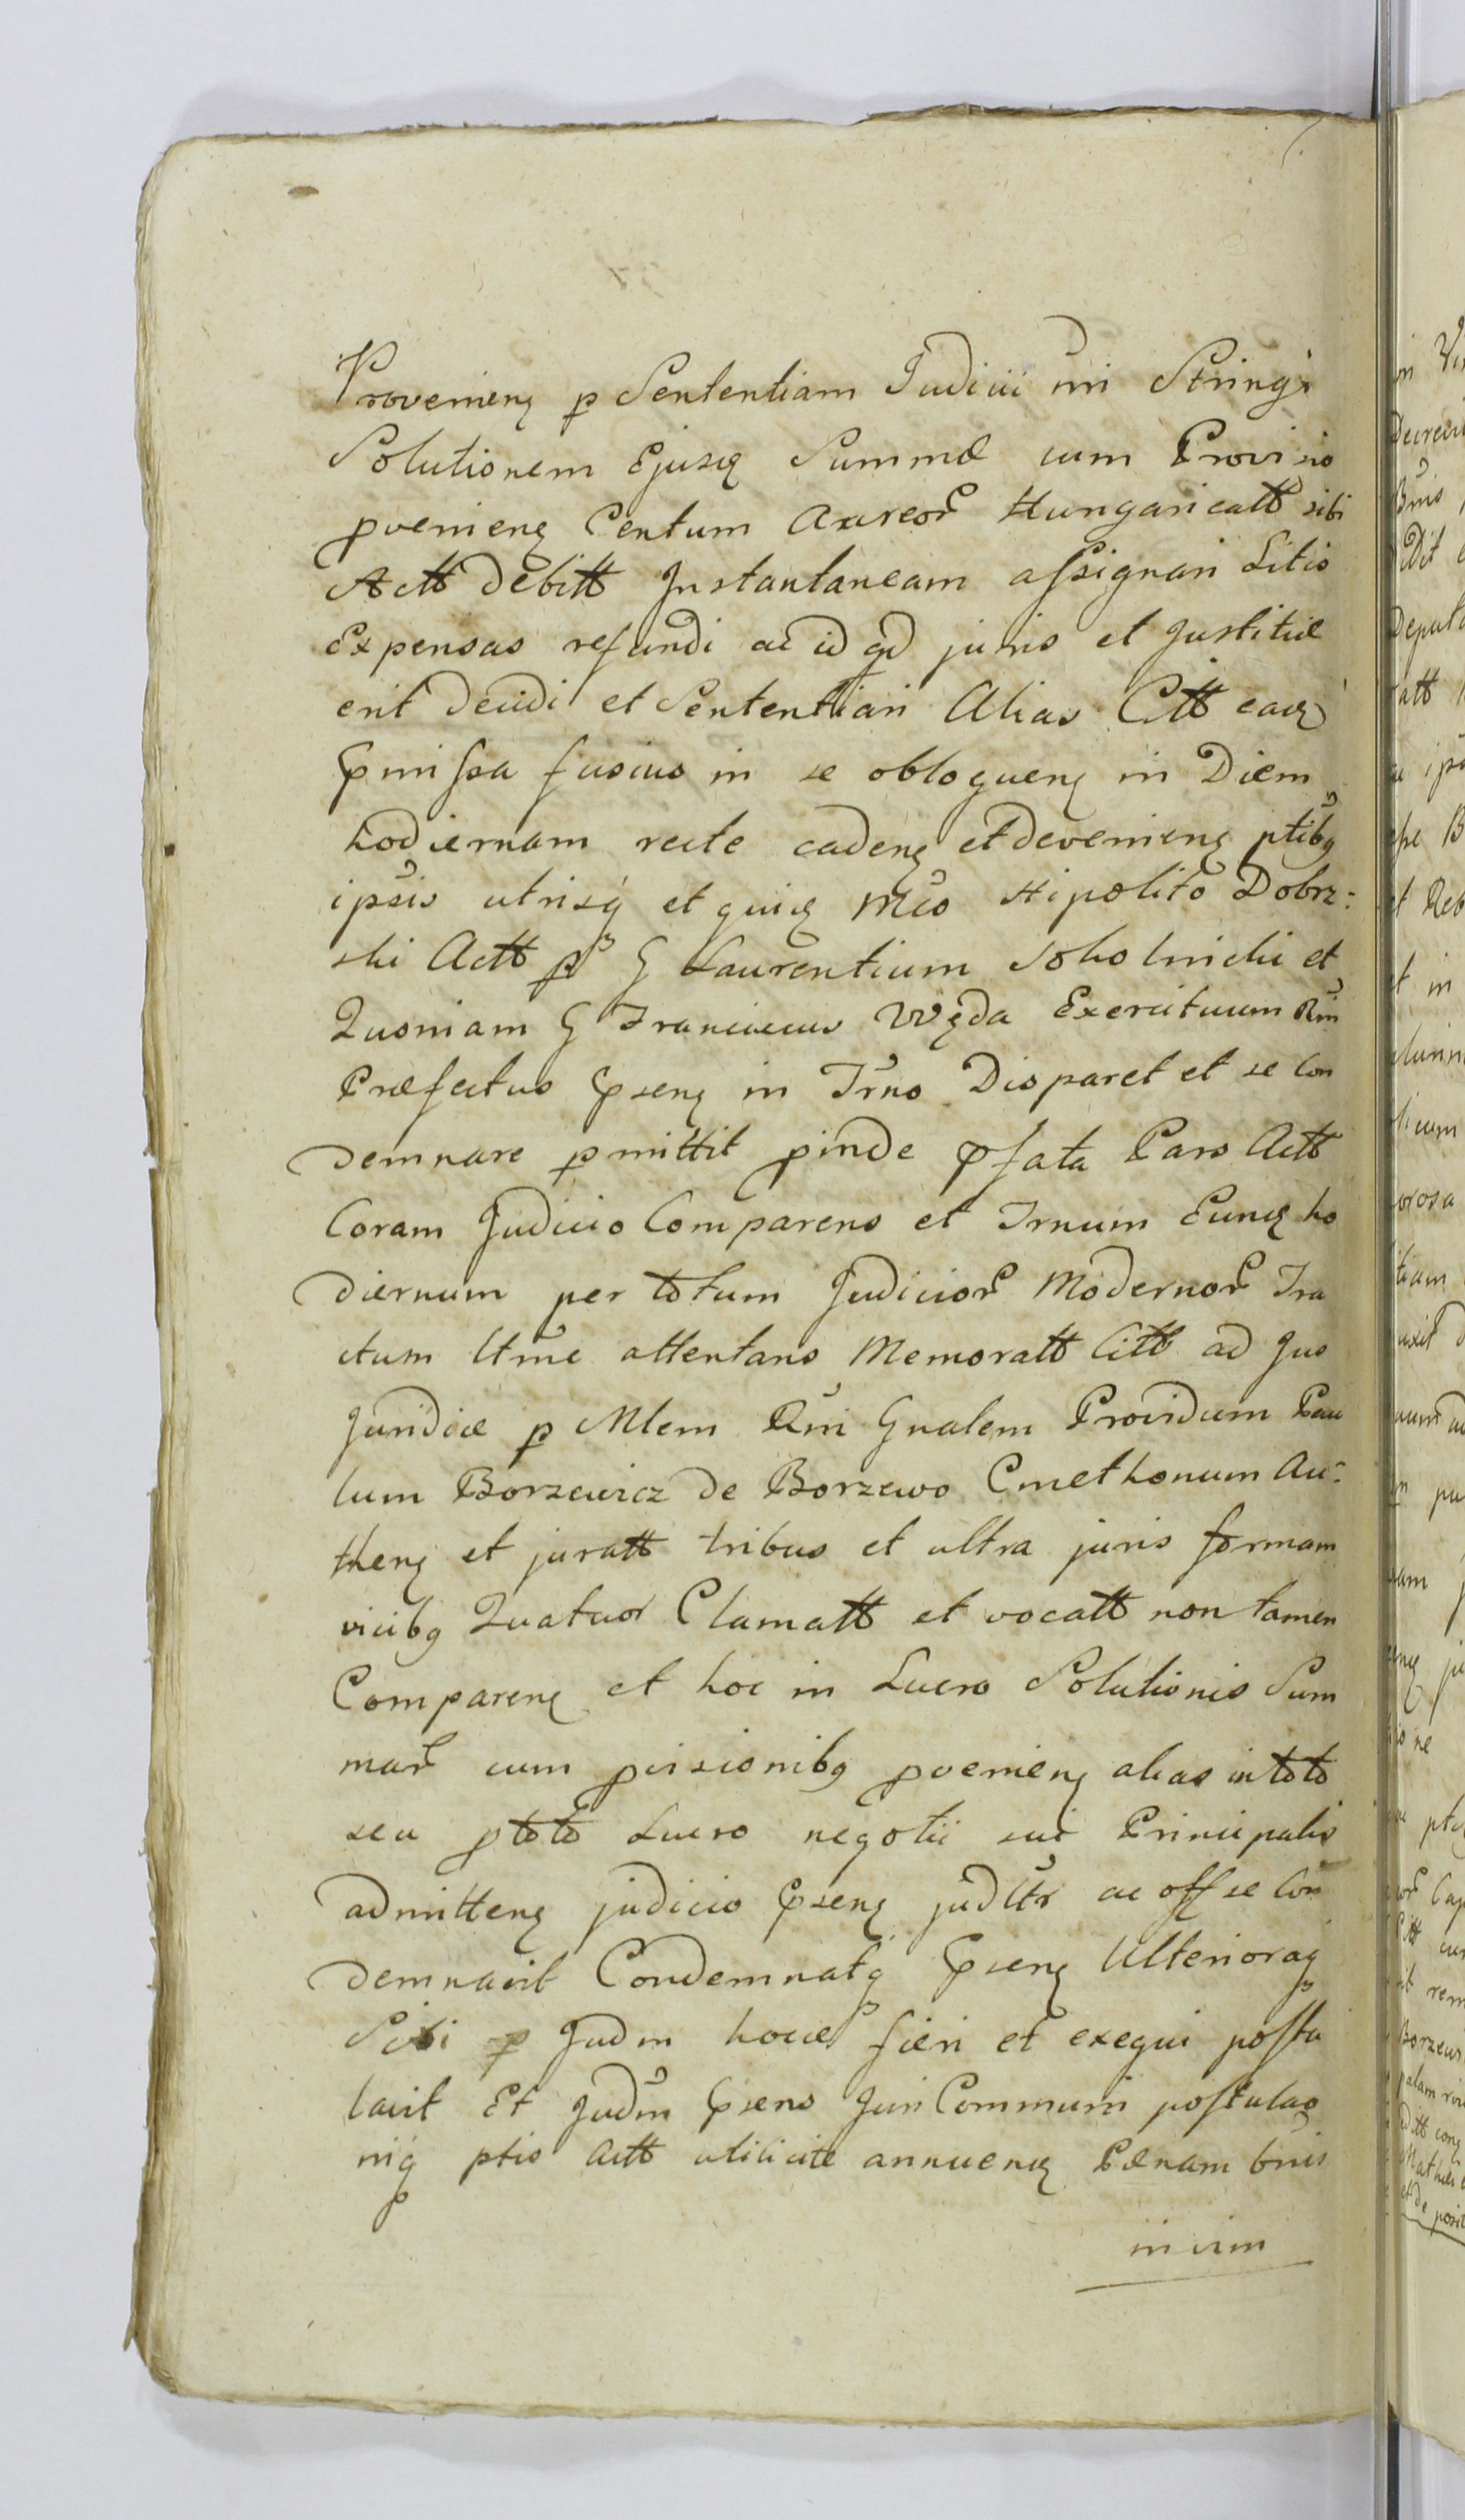 Provenienꝫ p Sententiam Judicii nri Stringi
Solutionem Ejusꝗ Summæ cum Proviso
pvenienꝫ Centum Aureor Hungaricatt sibi
Actt debitt Instantaneam assignari Litis
Expensas refundi ac id qd juris et Justitiæ
erit decidi et Sententiari Alias Citt eaꝗ
pmissa fusius in se obloquenꝫ in Diem
hodiernam recte cadenꝫ et devenienꝫ ptibꝫ
ipsis utrisꝗ et quiꝗ Mco Hipolito Dobrz:
ski Actt p G Laurentium Sokolnicki et
Quoniam G Franciscus Węda Exercituum Rni
Præfectus psenꝫ in Trno Disparet et se Con
demnare pmittit pinde pfata Pars Actt
Coram Judicio Comparens et Trnum Eunꝗ ho
diernum per totum Judicior Modernor Tra
ctum ltme attentans Memoratt Citt ad Jus
Juridice p Mlem Rni Gnalem Providum Pau
lum Borzewicz de Borzewo Cmethonum Au:
thenꝫ et juratt tribus et ultra juris formam
vicibꝫ Quatuor Clamatt et vocatt non tamen
Comparenꝫ et hoc in Lucro Solutionis Sum
mar cum pvisionibꝫ pvenienꝫ alias in toto
seu ptoto Lucro negotii sui Principalis
admittenꝫ judicio psenꝫ judltr ac off se Con
demnavit Condemnatꝗ psenꝫ Ulterioraꝗ
Sibi p Judm hocce fieri et exequi postu
lavit Et Judm psens Juri Communi postulao
niꝗ ptis Actt utilicite annuenꝗ Pœnam bnis
in vim